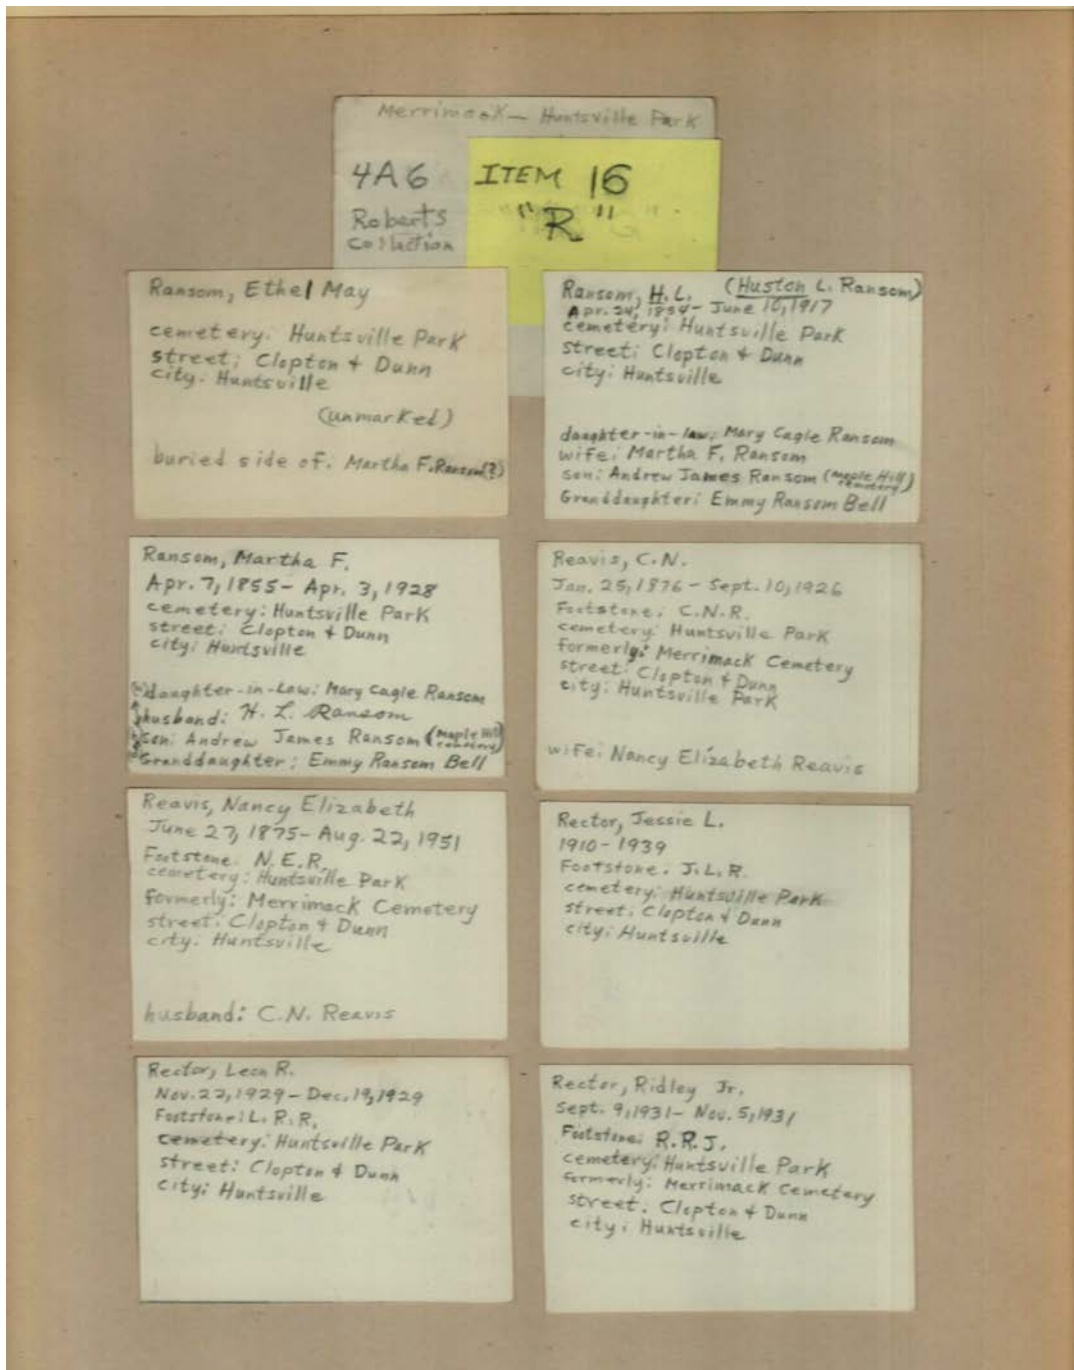 Merrimack — Huntsville Park
4A6
Roberts
Collection
ITEM 16
"R"
Ransom, Ethel May
cemetery: Huntsville Park
street: Clopton + Dunn
city: Huntsville
(unmarked)
buried side of: Martha F. Ransom(?)
Ransom, H.L. (Huston L. Ransom)
Apr. 24, 1854 - June 10, 1917
cemetery: Huntsville Park
street: Clopton + Dunn
city: Huntsville
daughter-in-law: Mary Cagle Ransom
wife: Martha F. Ransom
son: Andrew James Ransom (Maple Hill cemetery)
Granddaughter: Emmy Ransom Bell
Ransom, Martha F.
Apr. 7, 1855 - Apr. 3, 1928
cemetery: Huntsville Park
street: Clopton + Dunn
city: Huntsville
daughter-in-Law: Mary Cagle Ransom
husband: H. L. Ransom
son: Andrew James Ransom (Maple Hill cemetery)
Granddaughter: Emmy Ransom Bell
Reavis, C.N.
Jan. 25, 1876 - Sept. 10, 1926
Footstone: C.N.R.
cemetery: Huntsville Park
formerly: Merrimack Cemetery
street: Clopton + Dunn
city: Huntsville Park
wife: Nancy Elizabeth Reavis
Reavis, Nancy Elizabeth
June 27, 1875 - Aug. 22, 1951
Footstone: N.E.R.
cemetery: Huntsville Park
formerly: Merrimack Cemetery
street: Clopton + Dunn
city: Huntsville
husband: C.N. Reavis
Rector, Jessie L.
1910 - 1939
Footstone: J.L.R.
cemetery: Huntsville Park
street: Clopton + Dunn
city: Huntsville
Rector, Leon R.
Nov. 22, 1929 - Dec. 19, 1929
Footstone: L.R.R.
cemetery: Huntsville Park
street: Clopton + Dunn
city: Huntsville
Rector, Ridley Jr.
Sept. 9, 1931 - Nov. 5, 1931
Footstone: R.R.J.
cemetery: Huntsville Park
formerly: Merrimack Cemetery
street: Clopton + Dunn
city: Huntsville